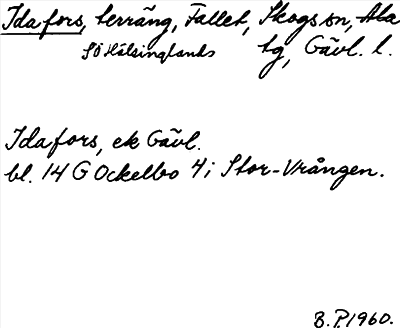 Idafors, terräng, Fallet, Skogs sn, Ala
SÖ Hälsinglands tg, Gävl. l.
Idafors, ek Gävl.
bl. 14 G Ockelbo 4; Stor-Vrången.
B.P. 1960.